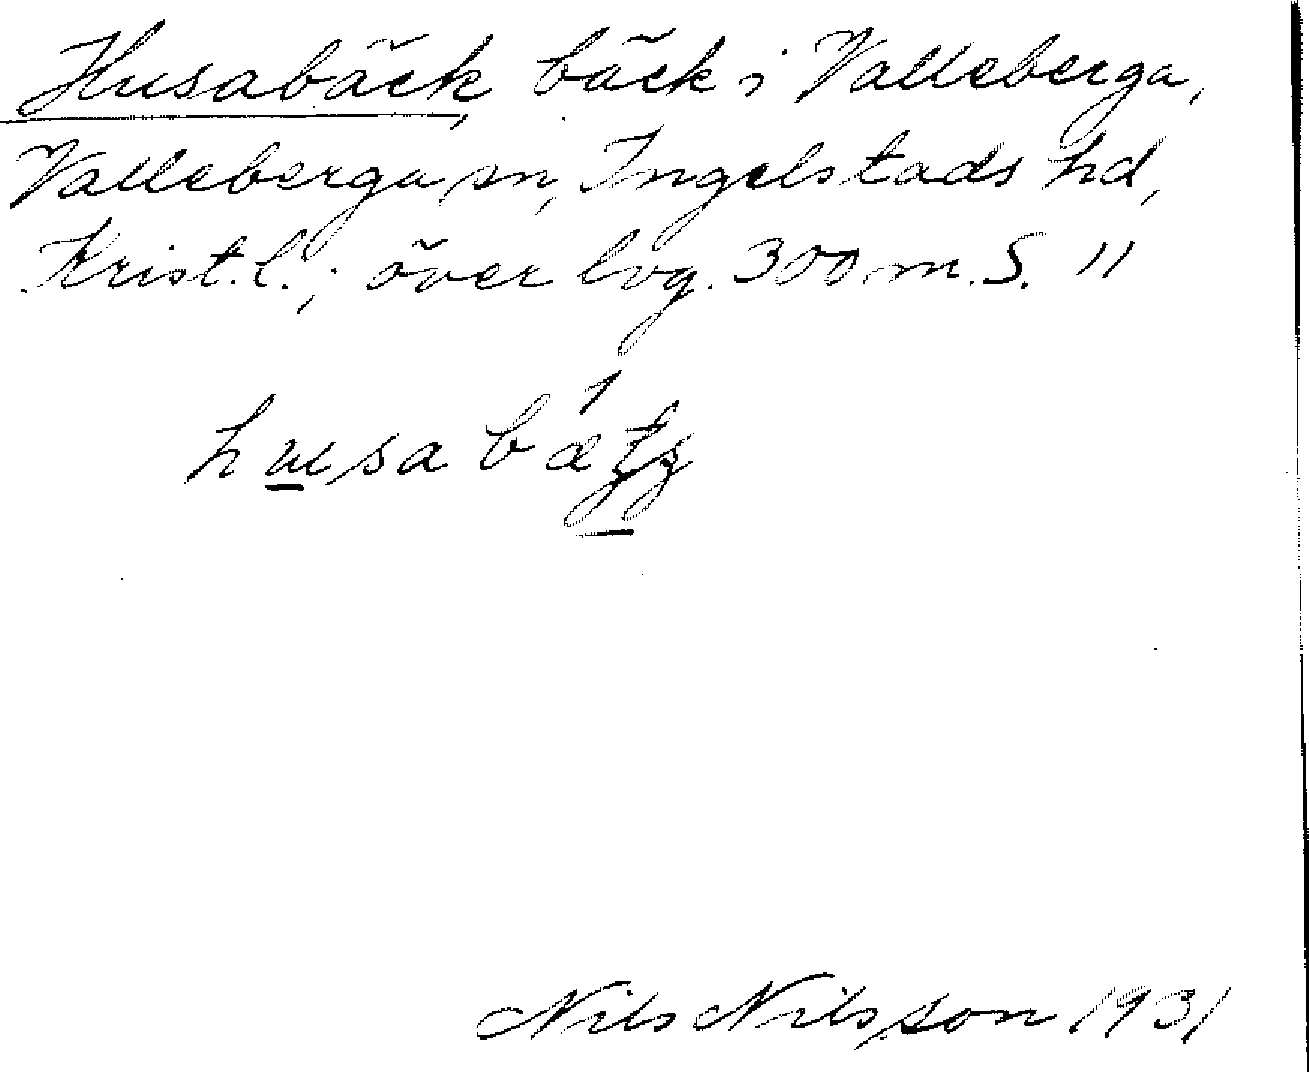 Husabäck, bäck i Valleberga,
Valleberga sn, Ingelstads hd,
Krist. l.; över lvg. 300 m. S. "
Nils Nilsson 1931